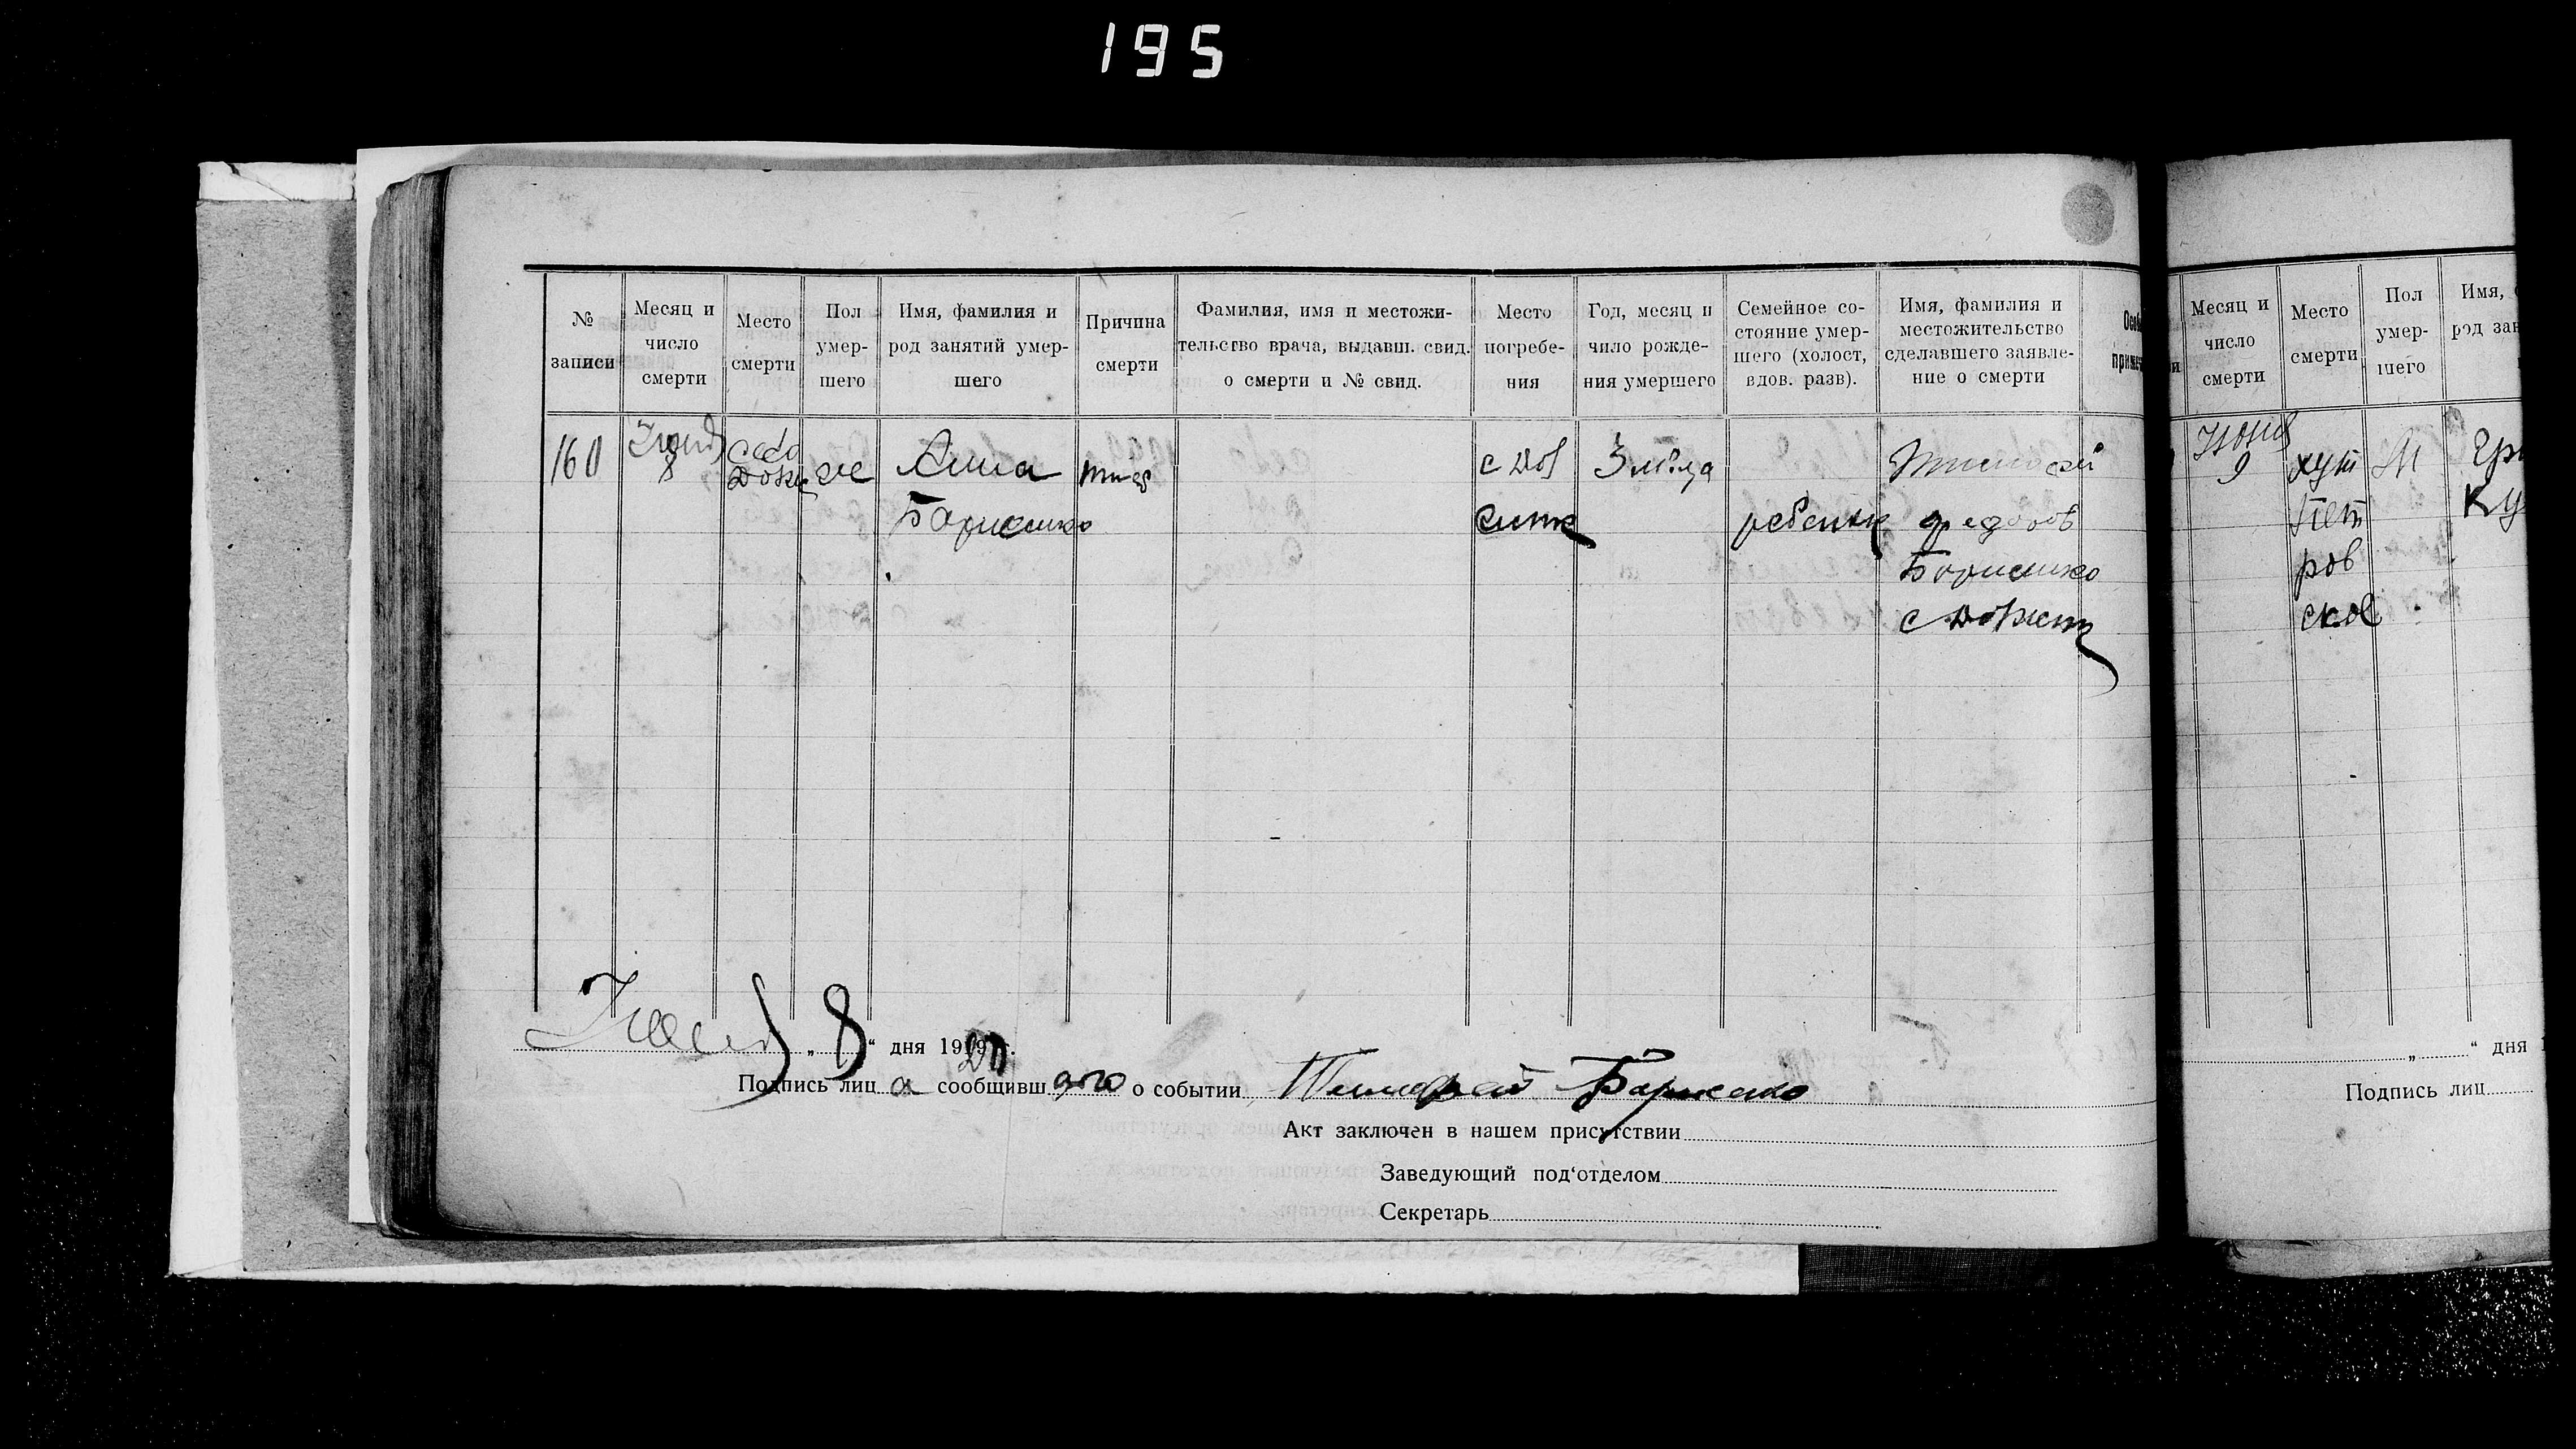 195
№ записи
Месяц и число смерти
Место смерти
Пол умер-
шего
Имя, фамилия и
род занятий умер-
шего
Причина смерти
Фамилия, имя и местожи-
тельство врача, выдавш. свид.
о смерти и № свид.
Место погребе-
ния
Год, месяц и
число рожде-
ния умершего
Семейное со-
стояние умер-
шего (холост,
вдов. разв).
Имя, фамилия и
местожительство
сделавшего заявле-
ние о смерти
160
Июня
8
село
ж
Анна
тиф
с
3 м-ца
ребенок
Тимофей
Федоров
Борисенко
с
Июня „8“ дня 1920 г.
Подпись лица сообщившаго о событии Тимофей Борисенко
Акт заключен в нашем присутствии
Заведующий под‘отделом
Секретарь
Месяц и
число
смерти
Место
смерти
Пол
умер-
шего
Имя,
род зан
Июня
9
хут
Пет
ров
ское
М
„ “ дня 1
Подпись лиц